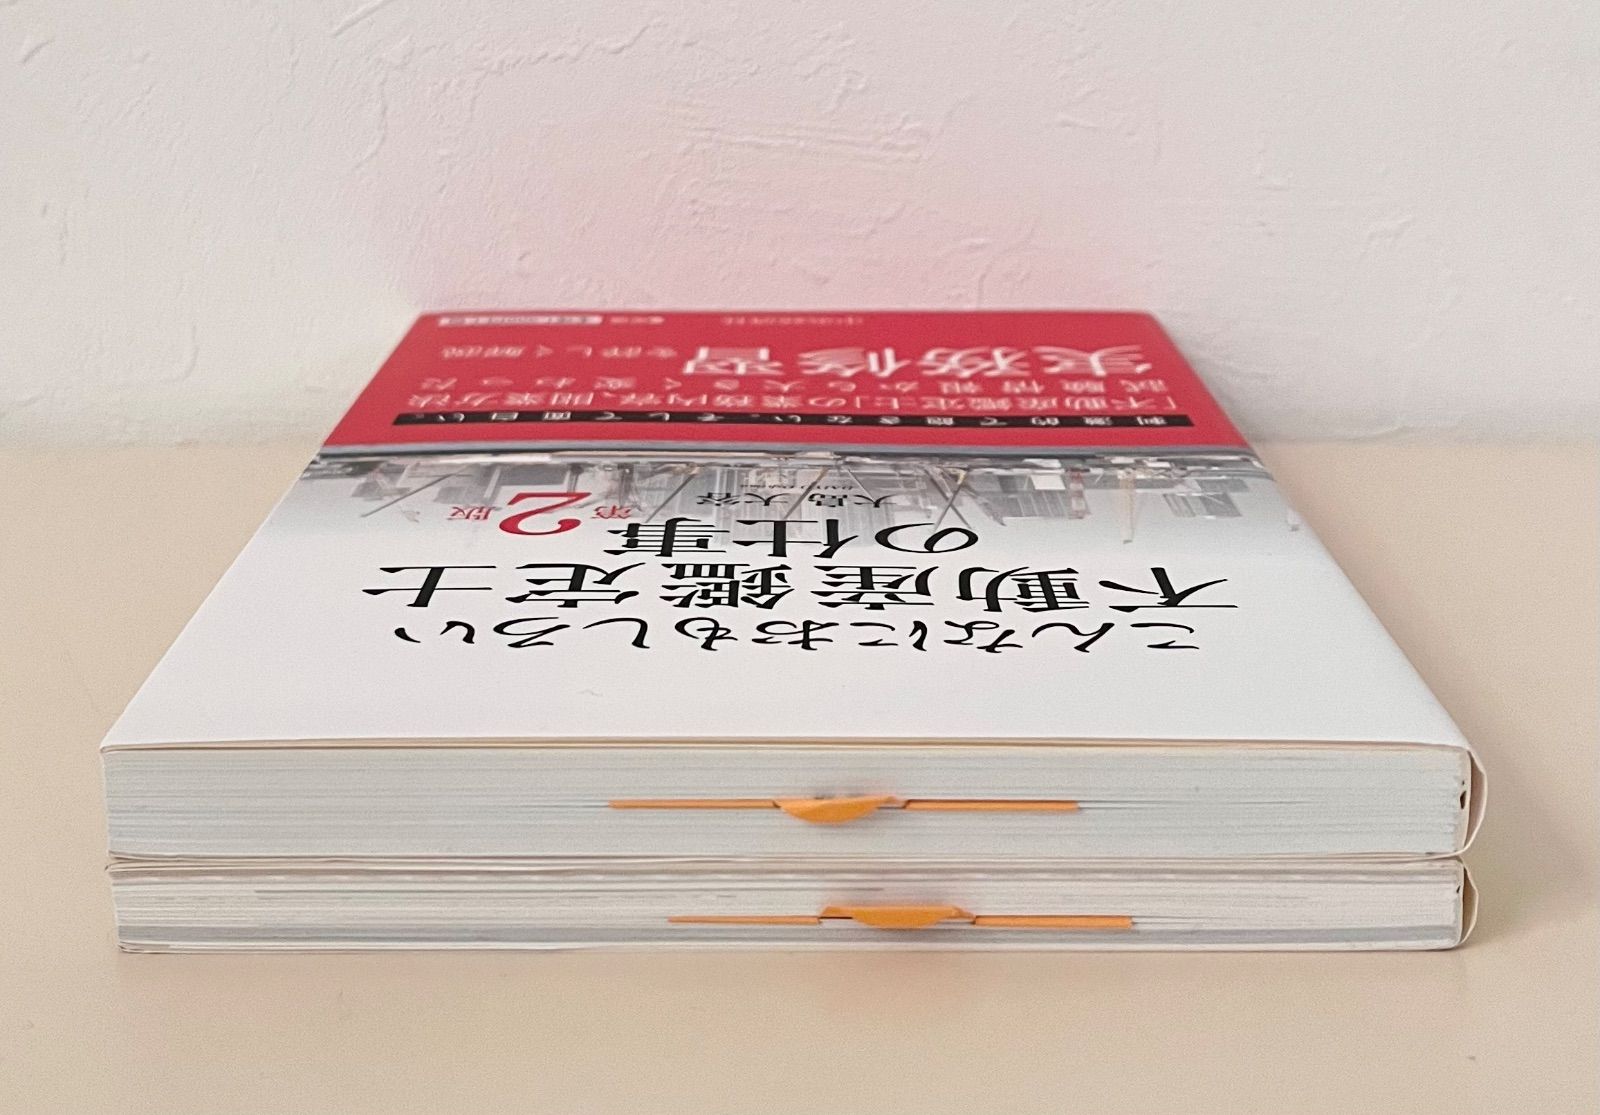 こんなにおもしろい
不動産鑑定士
の仕事
第2版
大島 大容
刺激的で飽きない。そして面白い。
「不動産鑑定士」の業務内容、開業方法
試験情報から大きく変わった
実務修習を詳しく解説
中央経済社